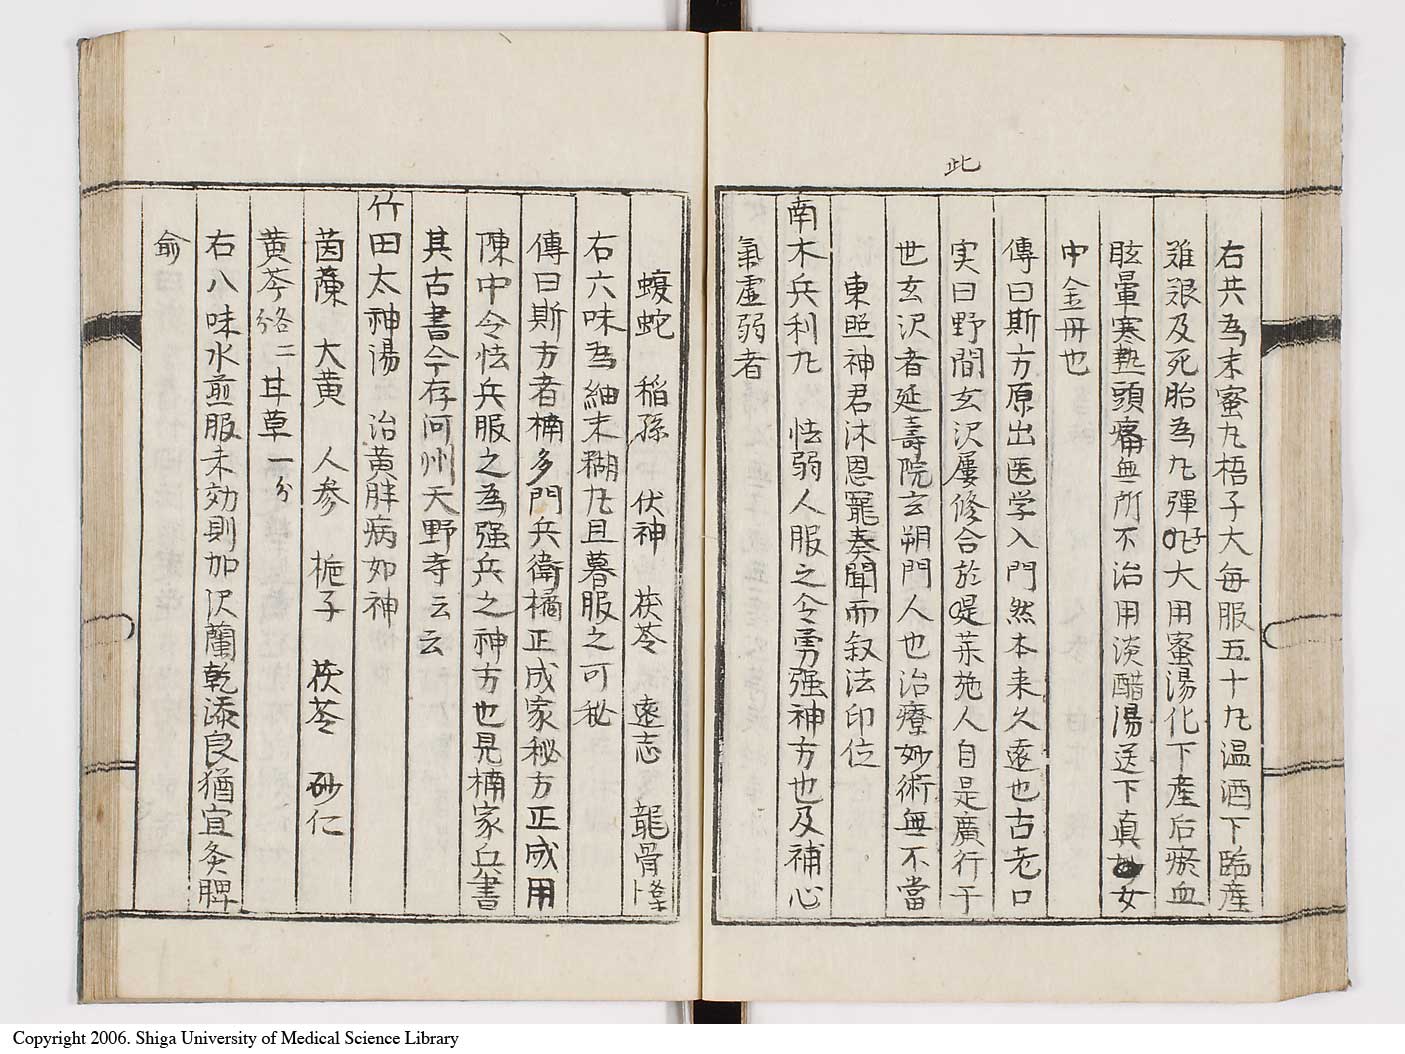 此
右共為末蜜九梧子大每服五十九温酒下臨産
难艰及死胎為九彈子大用蜜湯化下産后瘀血
眩暈寒熱頭痛無所不治用淡醋湯送下真女
中金丹也
傳曰斯方原出医学入門然本来久遠也古老口
実曰野間玄沢屢修合於是菜施人自是廣行于
世玄沢者延壽院玄朔門人也治療妙術無不當
東照神君沐恩寵奏聞而叙法印位
南木兵利九 怯弱人服之令勇强神方也及補心
氣虚弱者
蝮蛇 稲孫 伏神 茯苓 遠志 龍骨
右六味為細末糊九旦暮服之可秘
傳曰斯方者楠多門兵衛橘正成家秘方正成用
陳中令怯兵服之為强兵之神方也見楠家兵書
其古書今存河州天野寺云云
竹田太神湯 治黄胖病如神
茵蔯 大黄 人参 栀子 茯苓 砂仁
黄芩各二分 甘草一分
右八味水煎服未効則加沢蘭乾漆良猶宜灸脾
俞
Copyright 2006. Shiga University of Medical Science Library